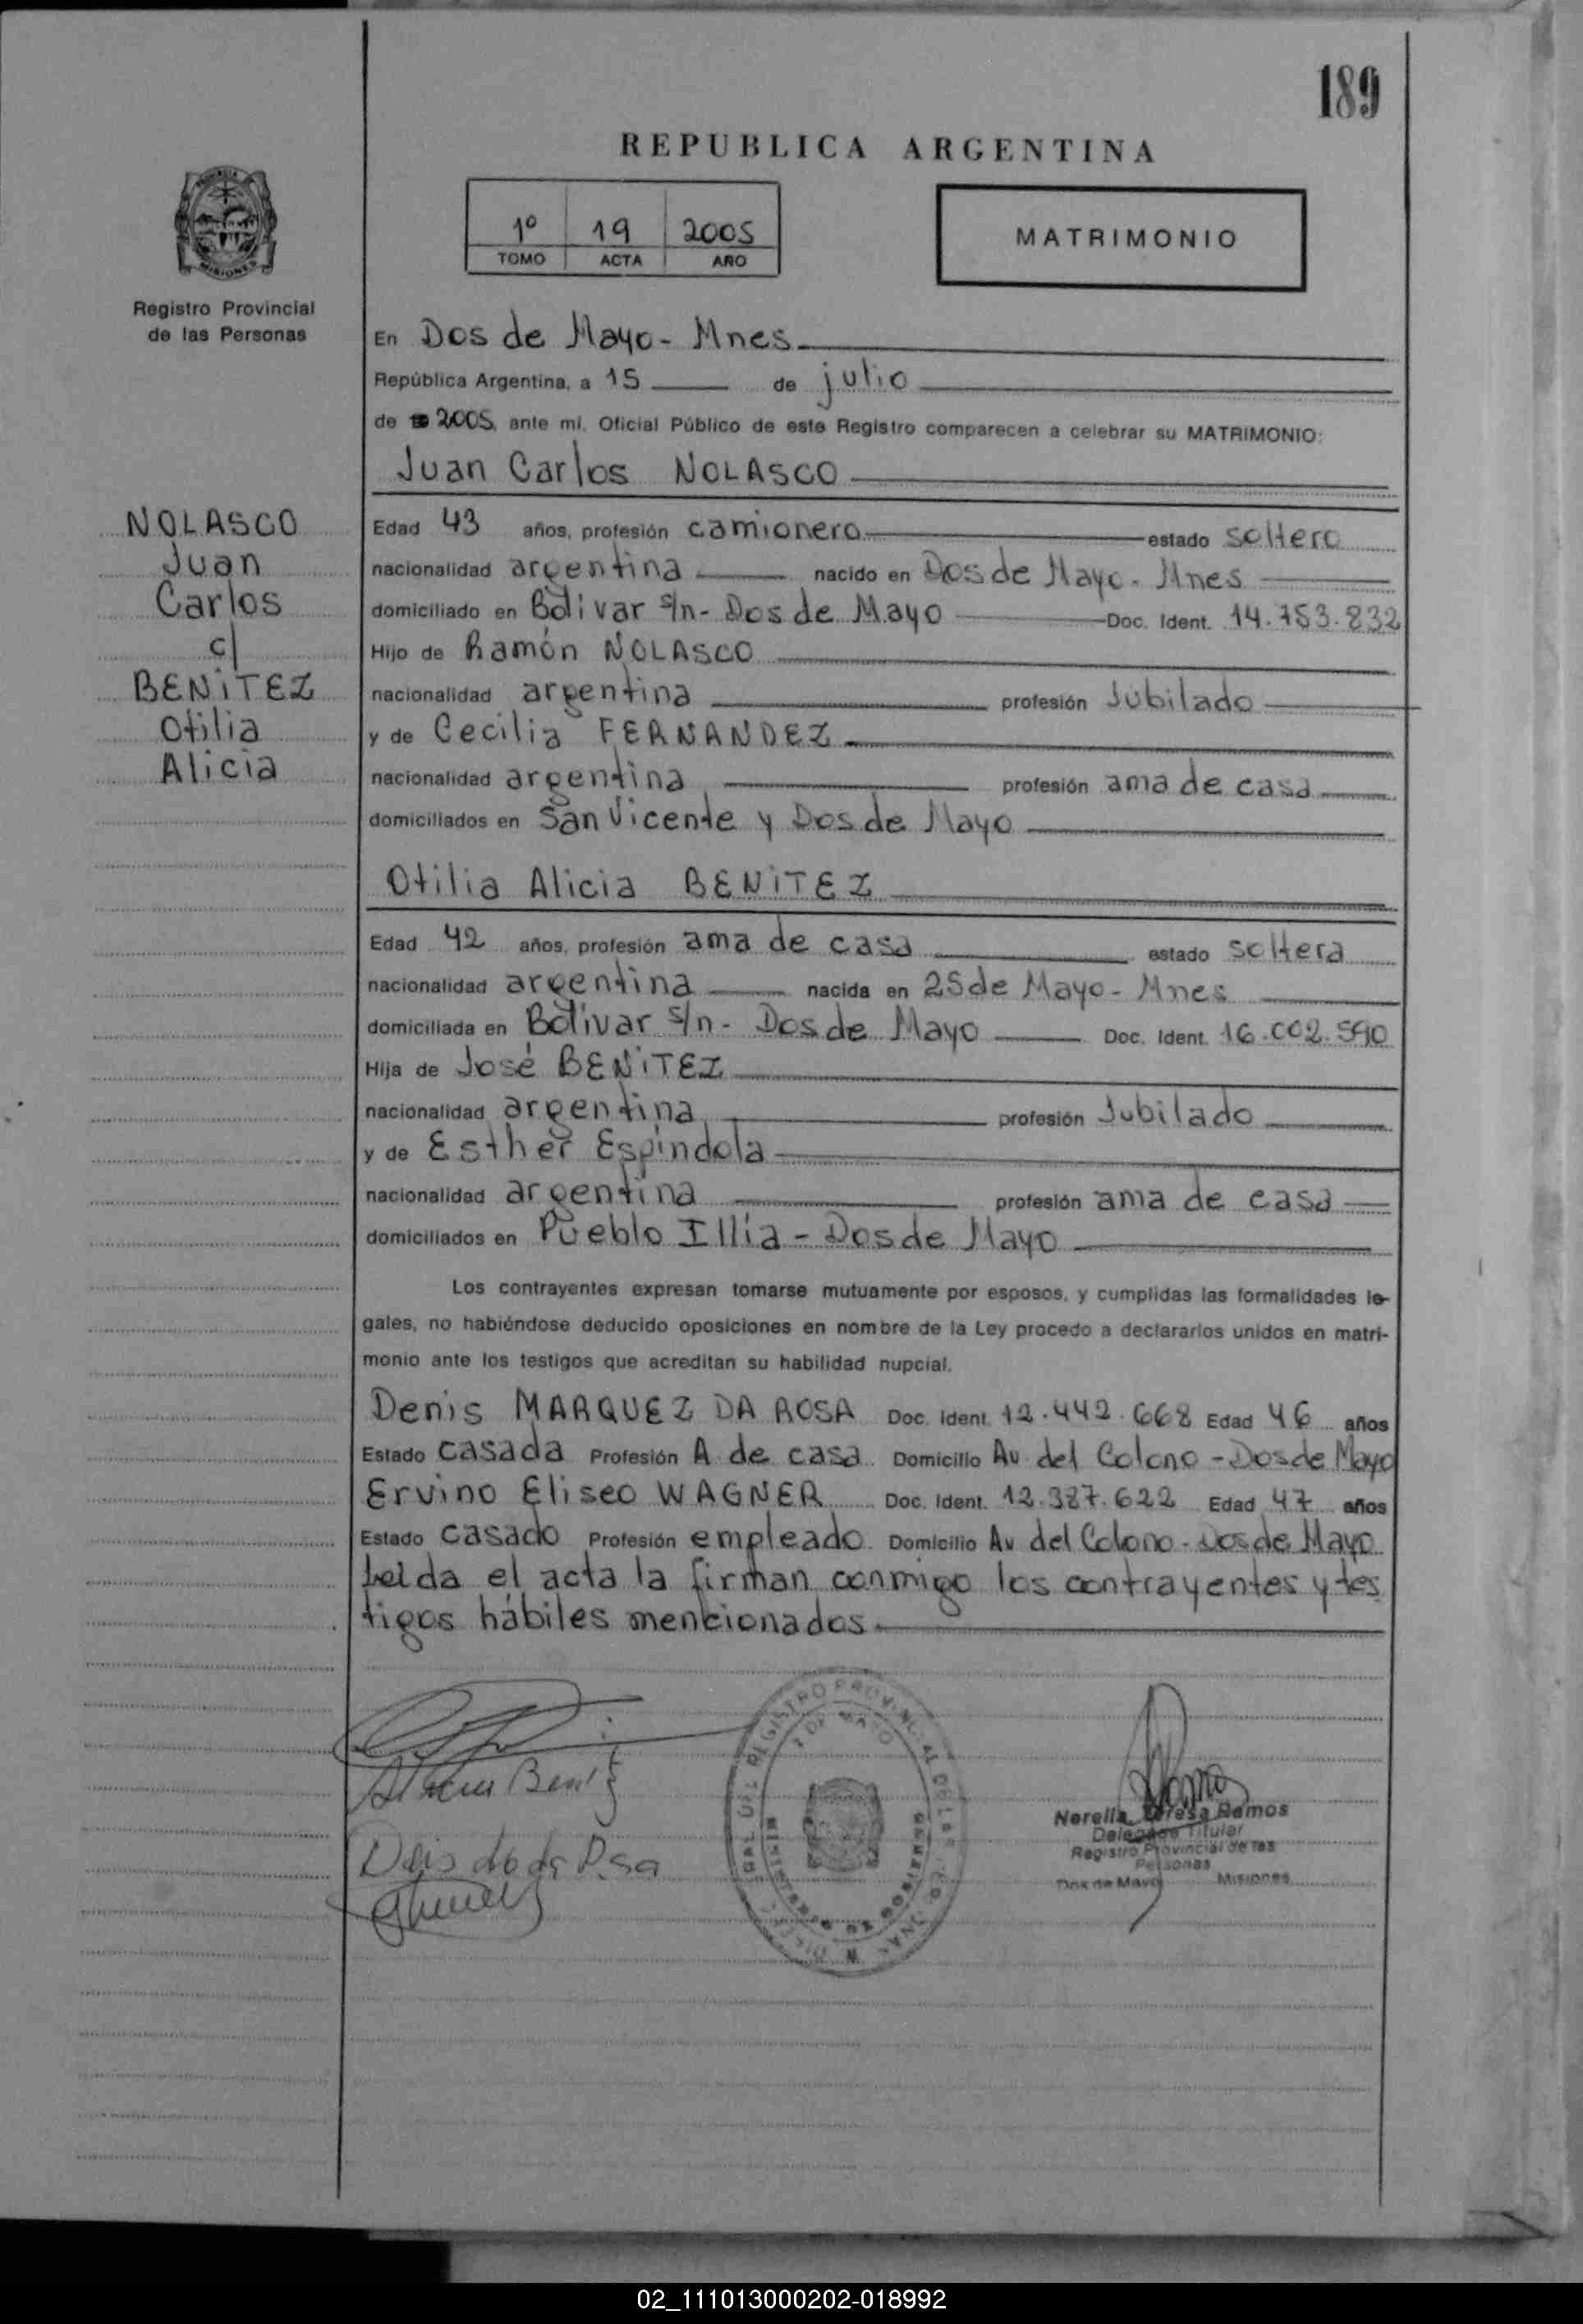 189
REPUBLICA ARGENTINA
1º 19 2005
TOMO ACTA AÑO
MATRIMONIO
Registro Provincial
de las Personas
En Dos de Mayo - Mnes.
República Argentina, a 15 de julio
de 2005, ante mí, Oficial Público de este Registro comparecen a celebrar su MATRIMONIO:
Juan Carlos NOLASCO
NOLASCO
Juan
Carlos
c/
BENITEZ
Otilia
Alicia
Edad 43 años, profesión camionero estado soltero
nacionalidad argentina nacido en Dos de Mayo - Mnes
domiciliado en Bolivar s/n - Dos de Mayo Doc. Ident. 14.753.832
Hijo de Ramón NOLASCO
nacionalidad argentina profesión Jubilado
y de Cecilia FERNANDEZ
nacionalidad argentina profesión ama de casa
domiciliados en San Vicente y Dos de Mayo
Otilia Alicia BENITEZ
Edad 42 años, profesión ama de casa estado soltera
nacionalidad argentina nacida en 25 de Mayo - Mnes
domiciliada en Bolivar s/n - Dos de Mayo Doc. Ident. 16.002.590
Hija de José BENITEZ
nacionalidad argentina profesión Jubilado
y de Esther Espíndola
nacionalidad argentina profesión ama de casa
domiciliados en Pueblo Illia - Dos de Mayo
Los contrayentes expresan tomarse mutuamente por esposos, y cumplidas las formalidades le-
gales, no habiéndose deducido oposiciones en nombre de la Ley procedo a declararlos unidos en matri-
monio ante los testigos que acreditan su habilidad nupcial.
Denis MARQUEZ DA ROSA Doc. Ident. 12.442.668 Edad 46 años
Estado casada Profesión A de casa Domicilio Av del Colono - Dos de Mayo
Ervino Eliseo WAGNER Doc. Ident. 12.387.622 Edad 47 años
Estado casado Profesión empleado Domicilio Av del Colono - Dos de Mayo
Leida el acta la firman conmigo los contrayentes y tes
tigos hábiles mencionados
REGISTRO PROVINCIAL DE LAS
2 DE MAYO
MISIONES
Norella Teresa Ramos
Delegada Titular
Registro Provincial de las
Personas
Dos de Mayo Misiones
02_111013000202-018992